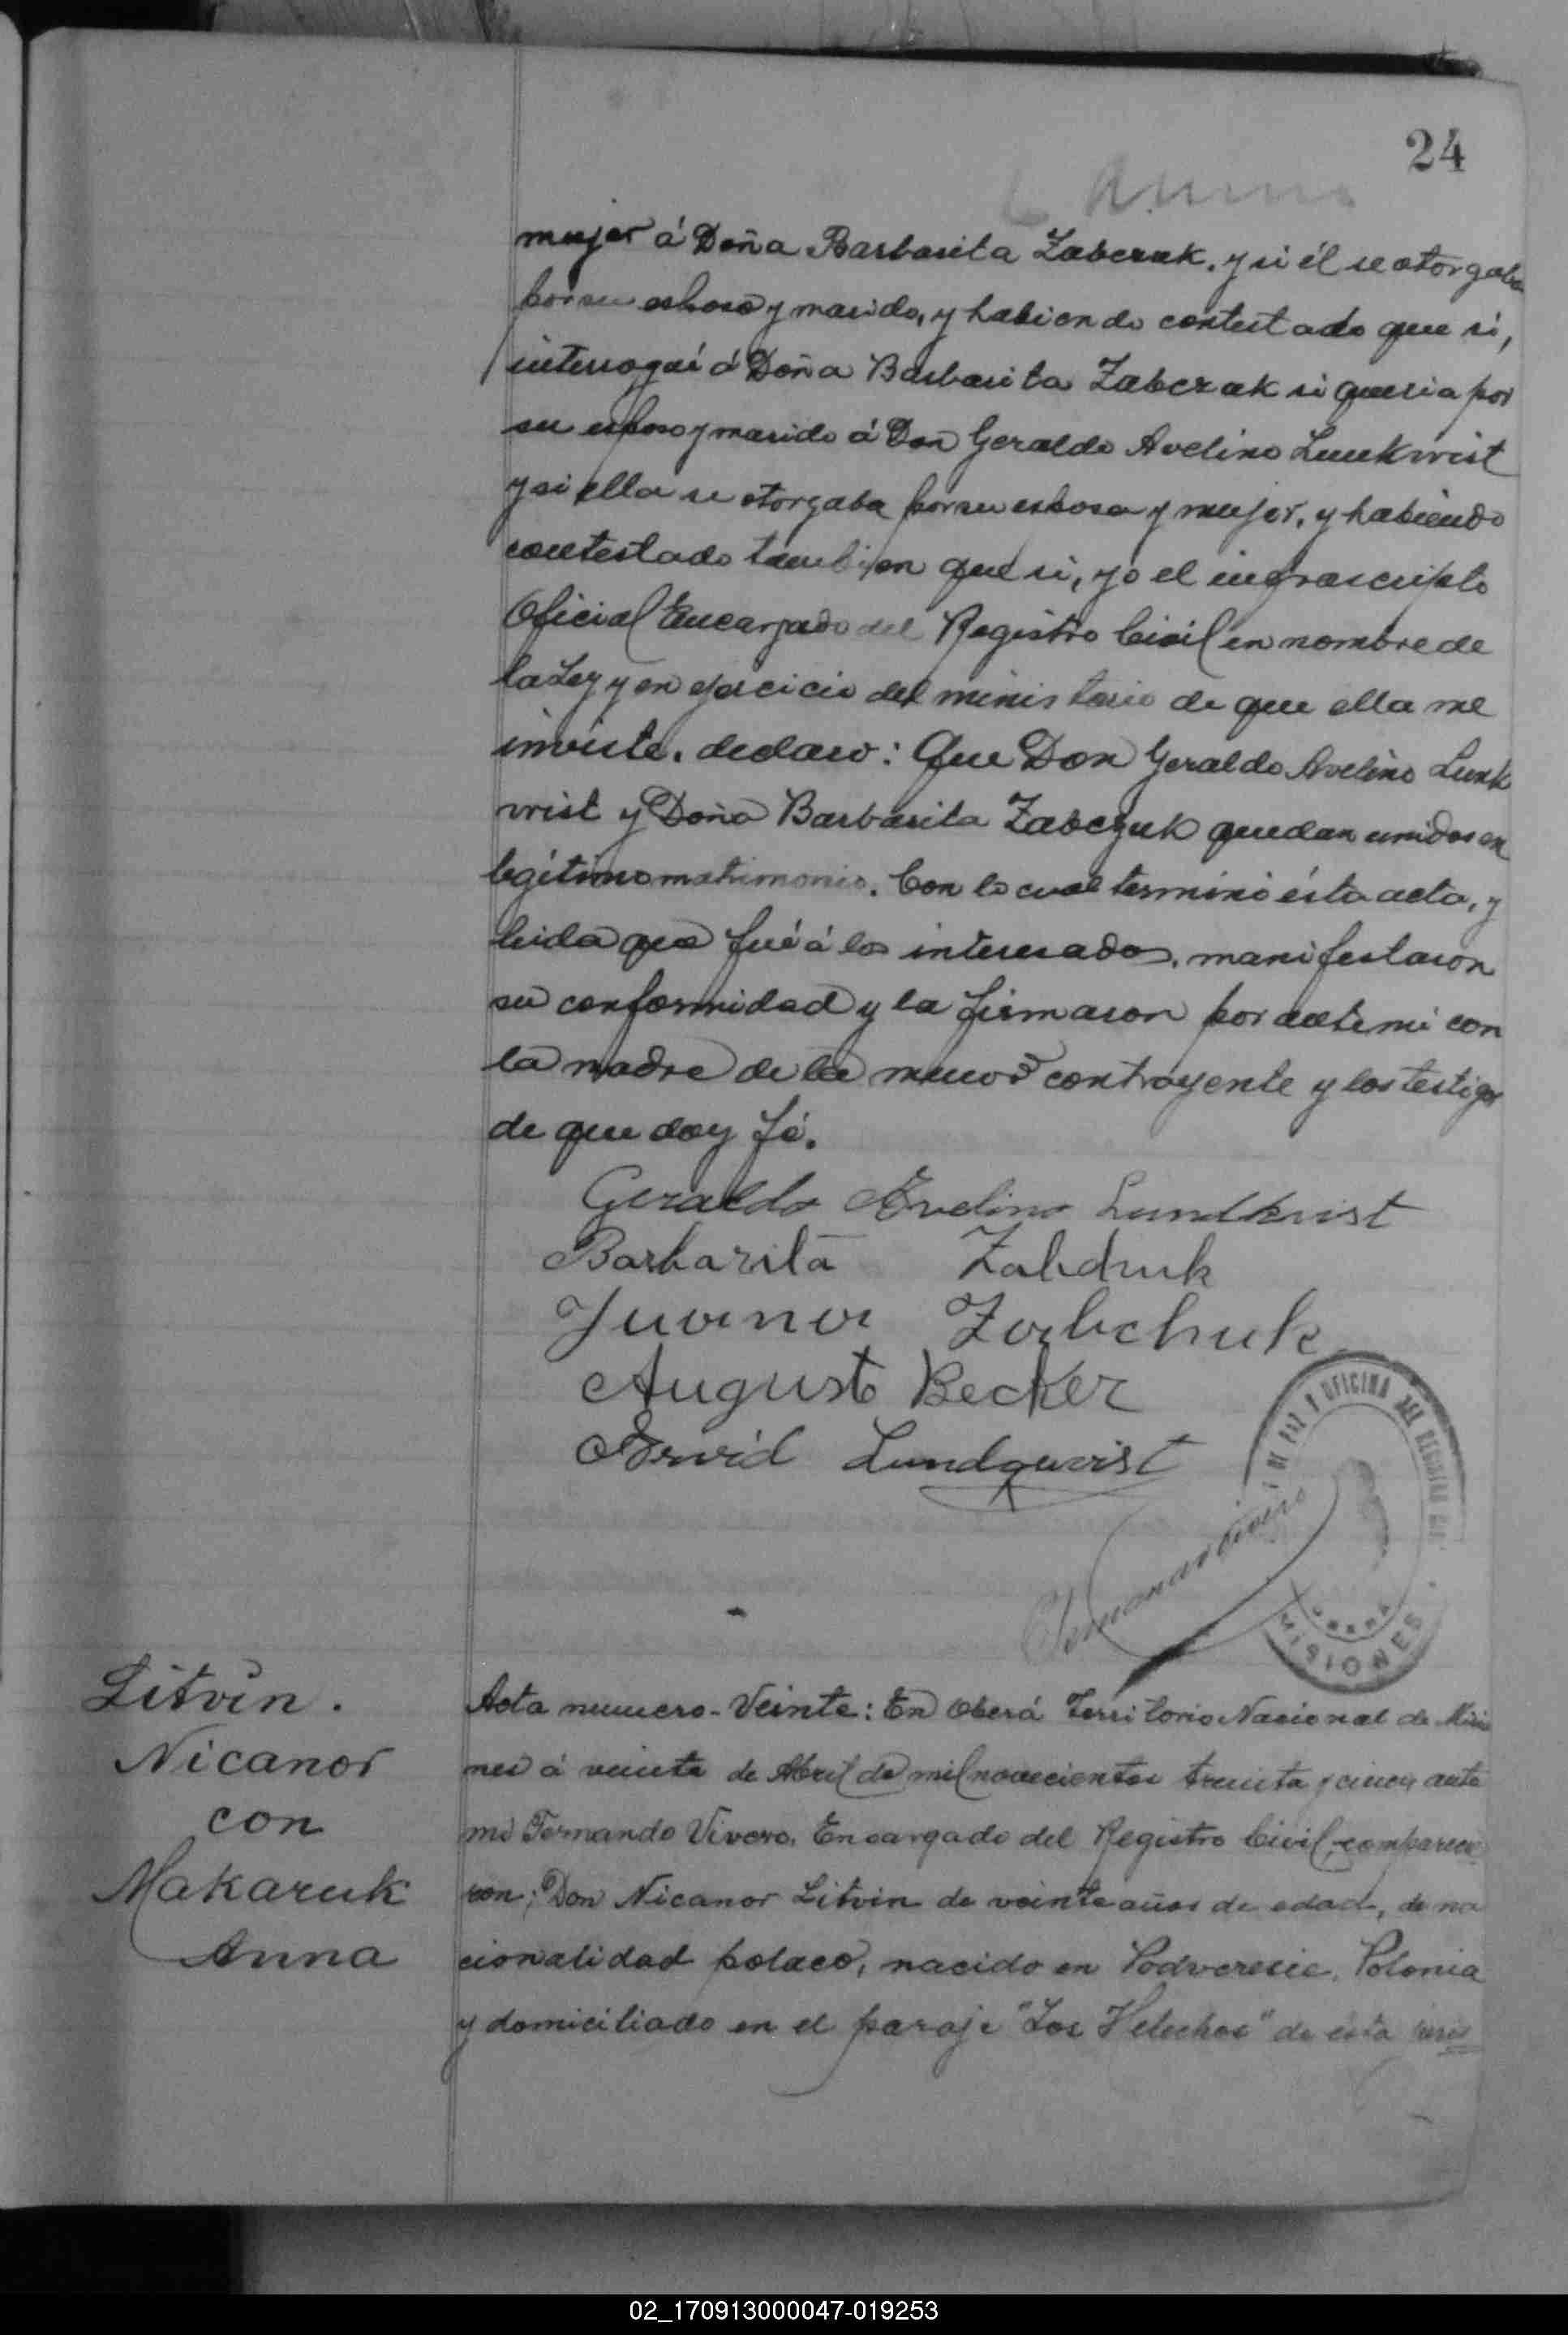 24
mujer á Doña Barbarita Zabczuk, y si él se otorgaba
por su esposo y marido, y habiendo contestado que si,
interrogué á Doña Barbarita Zabczuk si queria por
su esposo y marido á Don Geraldo Avelino Lunkwist
y si ella se otorgaba por su esposa y mujer, y habiendo
contestado tambien que si, yo el infrascripto
Oficial Encargado del Registro Civil en nombre de
la Ley y en ejercicio del ministerio de que ella me
inviste, declaro: Que Don Geraldo Avelino Lunk
wist y Doña Barbarita Zabczuk quedan unidos en
legítimo matrimonio. Con lo cual terminó ésta acta, y
leida que fué á los interesados, manifestaron
su conformidad y la firmaron por ante mi con
la madre de la menor contrayente y los testigos
de que doy fé.
Geraldo Avelino Lundkvist
Barbarita Zabchuk
Juana Zabchuk
Augusto Becker
Arvid Lundqwist
DE PAZ Y OFICINA DEL REGISTRO
OBERA
MISIONES
Litvin.
Nicanor
con
Makaruk
Anna
Acta numero - Veinte: En Oberá Territorio Nacional de Misio
nes á veinte de Abril de mil novecientos treinta y cinco, ante
mi Fernando Vivero, Encargado del Registro Civil, comparecie
ron; Don Nicanor Litvin de veinte años de edad, de na
cionalidad polaco, nacido en Podveresie, Polonia
y domiciliado en el paraje "Los Helechos" de ésta juris
02_170913000047-019253